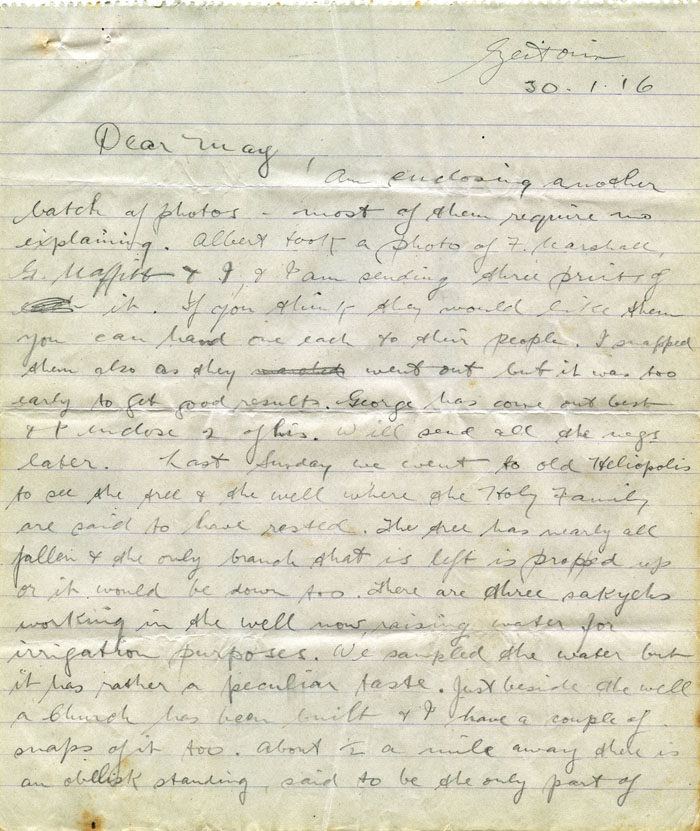 Zeitoun
30.1.'16
Dear May,
Am enclosing another
batch of photos - most of them require no
explaining. Albert took a photo of F. Marshall,
G. Maffitt & I, & I am sending three prints of
it. If you think they would like them
you can hand one each to their people. I snapped
them also as they went out but it was too
early to get good results. George has come out best
& I enclose 2 of his. Will send all the negs
later. Last Sunday we went to old Heliopolis
to see the tree & the well where the Holy Family
are said to have rested. The tree has nearly all
fallen & the only branch that is left is propped up
or it would be down too. There are three sakyehs
working in the well now, raising water for
irrigation purposes. We sampled the water but
it has rather a peculiar taste. Just beside the well
a Church has been built & I have a couple of
snaps of it too. About ½ a mile away there is
an obelisk standing, said to be the only part of